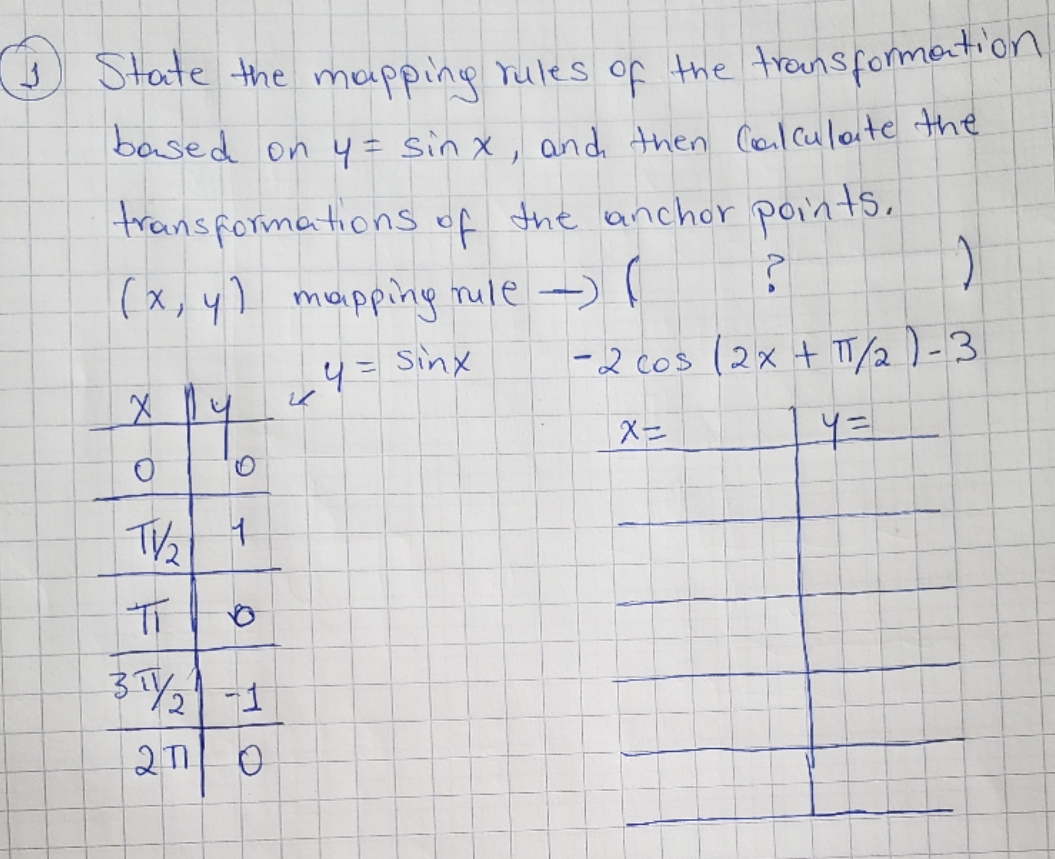 1 State the mapping rules of the transformation
based on y = sin x, and then Calculate the
transformations of the anchor points.
(x, y) mapping rule → ( ? )
y = sinx -2 cos (2x + π/2) - 3
x y ↙ x= y=
0 0
π/2 1
π 0
3π/2 -1
2π 0